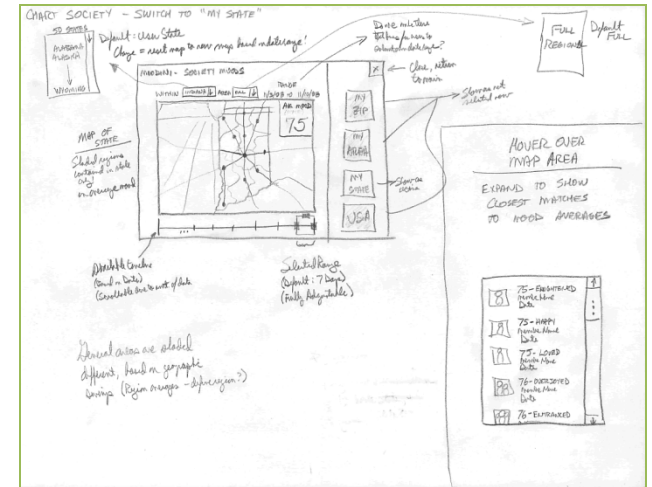 CHART SOCIETY - SWITCH TO "MY STATE"
50 STATES
ALABAMA
ALASKA
WYOMING
Default: User State
Change = reset map to new map based on date range!
FULL
REGIONS
Default
FULL
MOODJAM - SOCIETY MOODS
X
Close, return
to main
WITHIN INDIANA AREA FULL
RANGE
11/3/08 to 11/10/08
AR MOOD
75
MY
ZIP
MY
AREA
MY
STATE
USA
Show as not
selected now
Show as
active
MAP OF
STATE
Shaded regions
contained in state
only!
on average mood
Adjustable timeline
(Based on Dates)
(Scrollable due to amt of data)
Selected Range
(Default: 7 Days)
(Fully Adjustable)
General areas are shaded
different, based on geographic
(Region averages - define region?)
HOVER OVER
MAP AREA
EXPAND TO SHOW
CLOSEST MATCHES
TO MOOD AVERAGES
75 - FRIGHTENED
Member Name
Date
75 - HAPPY
Member Name
Date
75 - LOVED
Member Name
Date
76 - OVERJOYED
Member Name
Date
76 - ENTRANCED